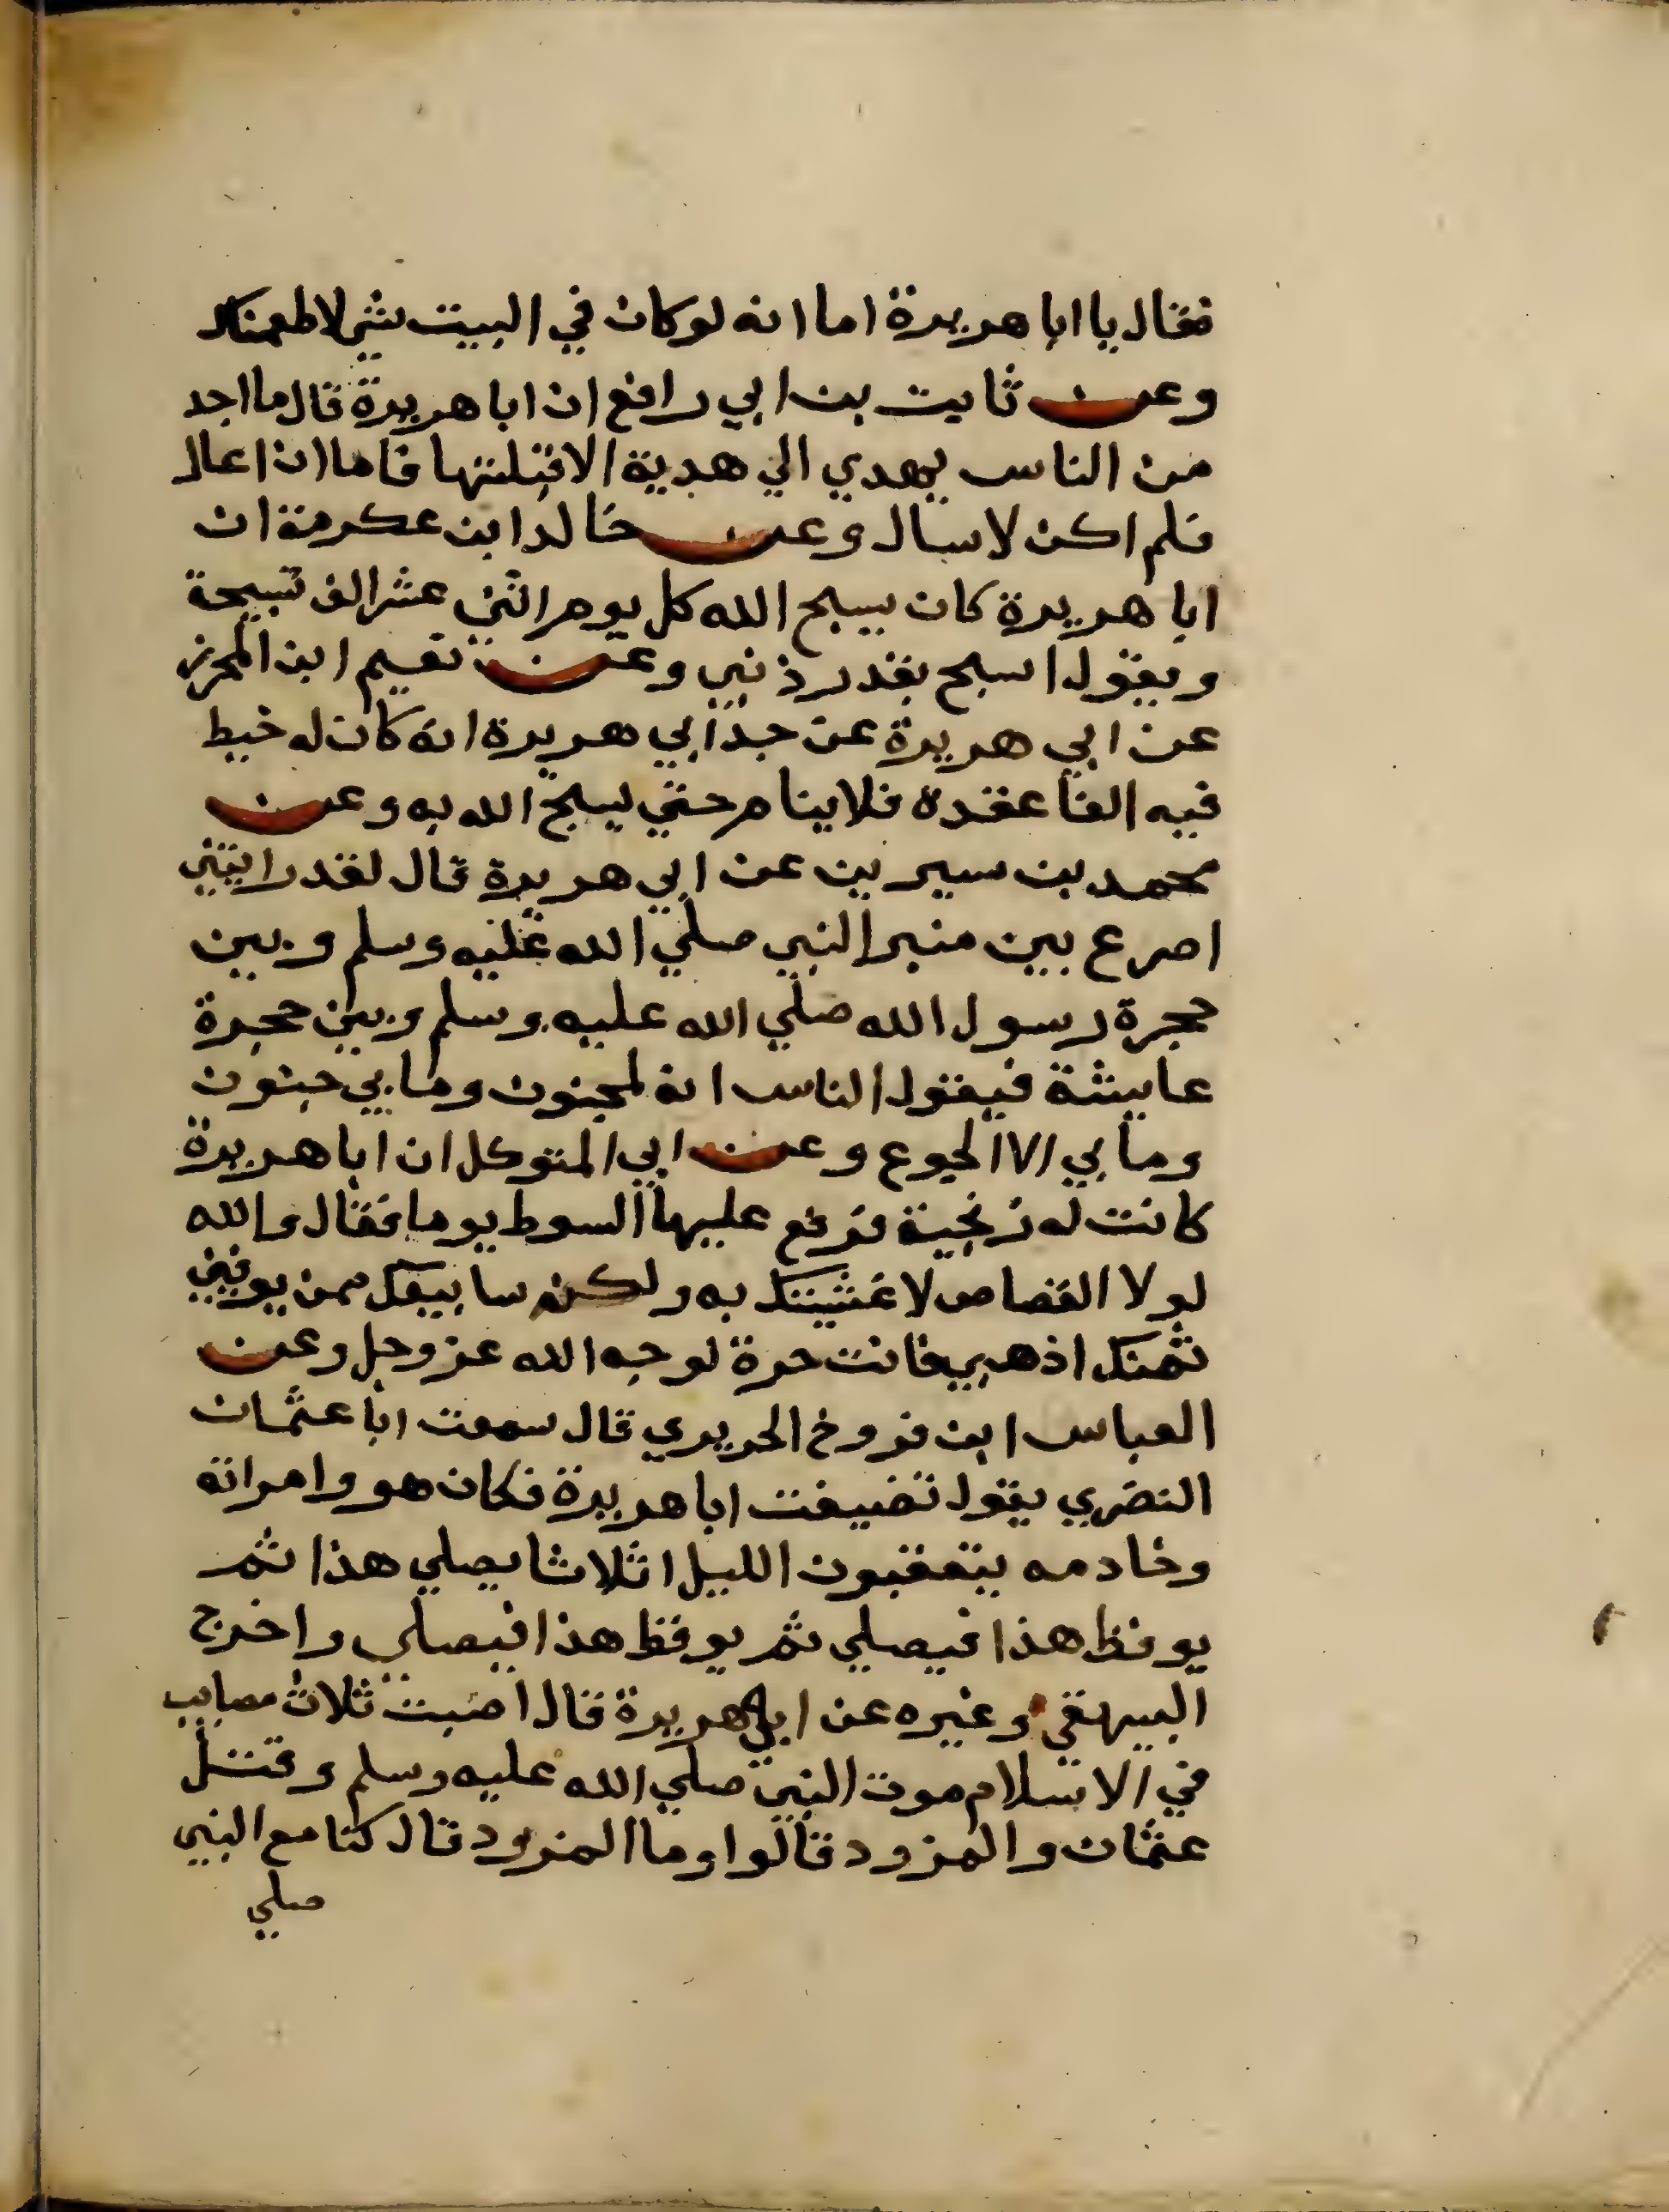 فقال يا ابا هريرة اما انه لو كان في البيت شي لاطعمناك
وعن ثابت بن ابي رافع ان ابا هريرة قال ما اجد
من الناس يهدي الي هدية الا قبلتها فاما ان اسال
فلم اكن لاسال وعن خالد ابن عكرمة ان
ابا هريرة كان يسبح الله كل يوم اثني عشر الف تسبيحة
ويقول اسبح بقدر ذنبي وعن نعيم ابن المحرز
عن ابي هريرة عن جد ابي هريرة انه كان له خيط
فيه الفا عقدة فلا ينام حتي يسبح الله به وعن
محمد بن سيرين عن ابي هريرة قال لقد رايتني
اصرع بين منبر النبي صلي الله عليه وسلم وبين
حجرة رسول الله صلي الله عليه وسلم وبين حجرة
عايشة فيقول الناس انه لمجنون وما بي جنون
وما بي الا الجوع وعن ابي المتوكل ان ابا هريرة
كانت له زنجية فرفع عليها السوط يوما فقال والله
لولا القصاص لاغشينك به ولكن سابيعك ممن يوفيني
ثمنك اذهبي فانت حرة لوجه الله عز وجل وعن
العباس ابن فروخ الجريري قال سمعت ابا عثمان
النضري يقول تضيفت ابا هريرة فكان هو وامراته
وخادمه يتعقبون الليل اثلاثا يصلي هذا ثم
يوقظ هذا فيصلي ثم يوقظ هذا فيصلي واخرج
البيهقي وغيره عن ابي هريرة قال اصبت ثلاث مصايب
في الاسلام موت النبي صلي الله عليه وسلم وقتل
عثمان والمزود قالوا وما المزود قال كنا مع النبي
صلي